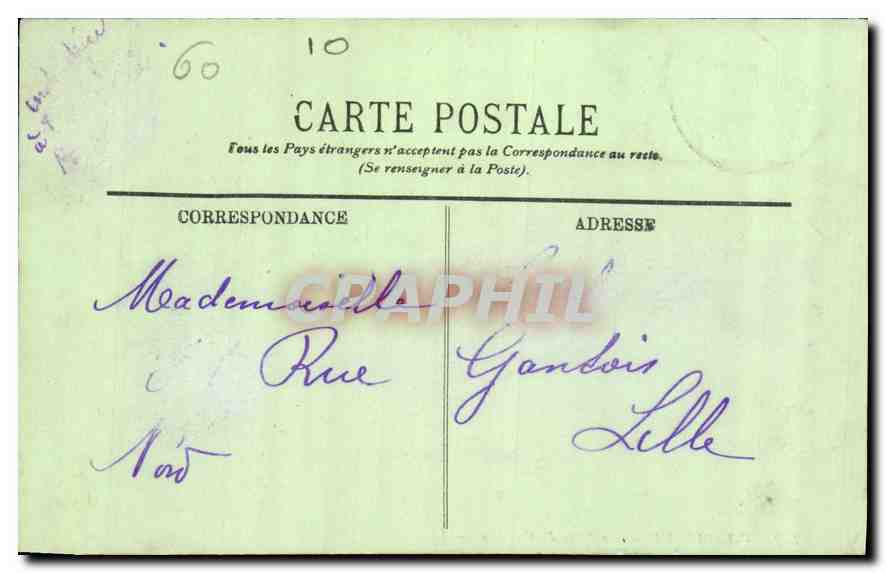 60
10
CARTE POSTALE
Tous les Pays étrangers n'acceptent pas la Correspondance au recto.
(Se renseigner à la Poste).
CORRESPONDANCE
ADRESSE
Mademoiselle
CPAPHIL
Rue Gantois
Lille
Nord